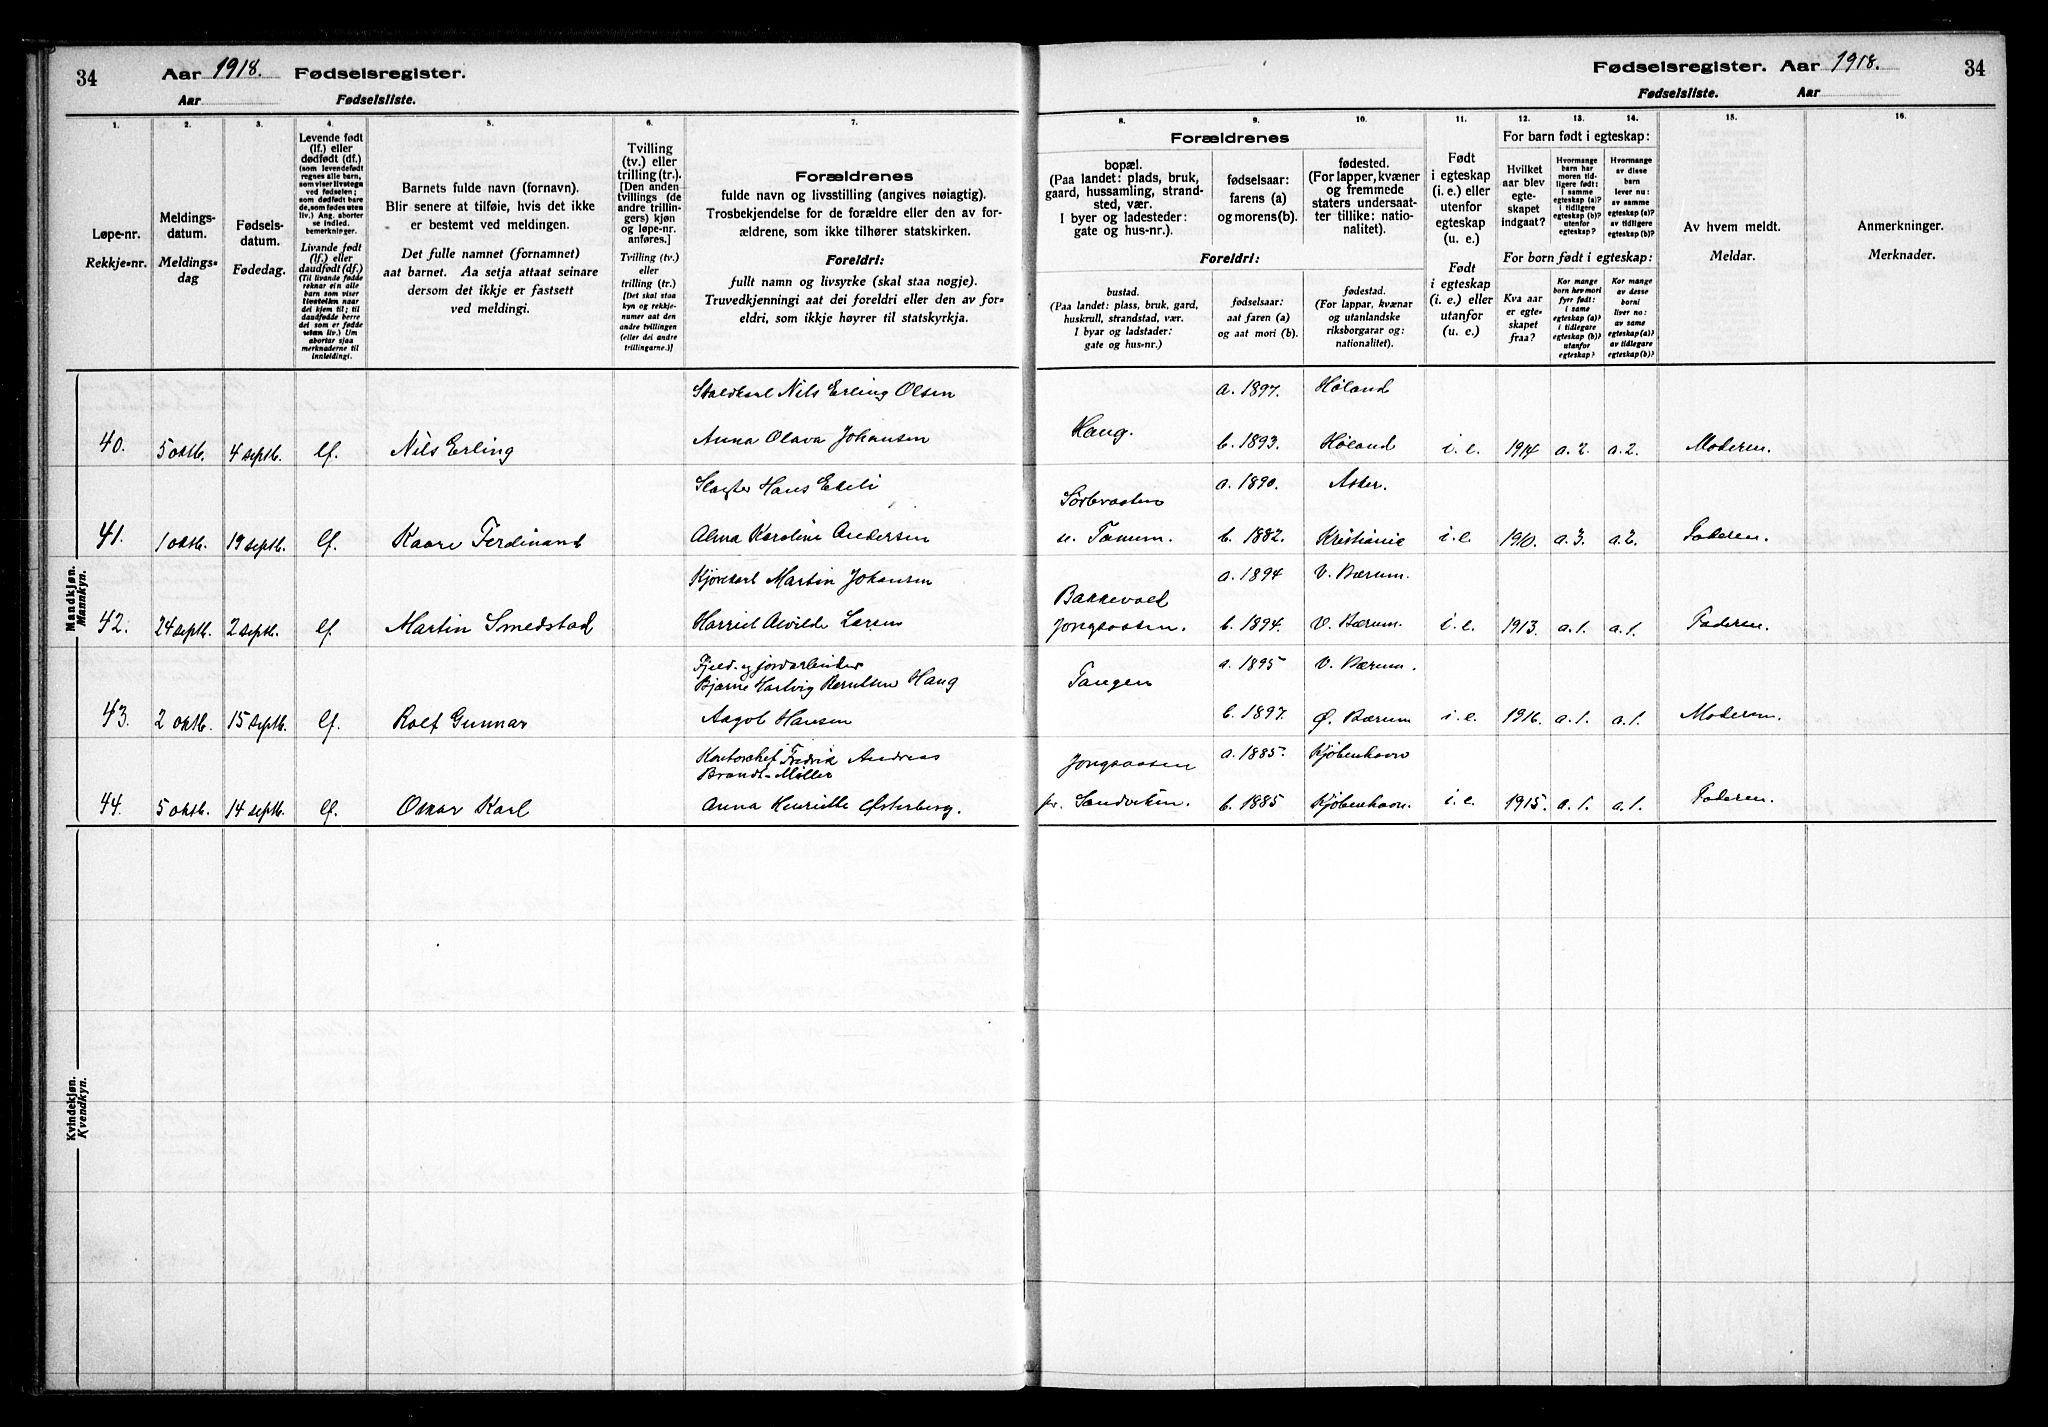 34 Aar 1918. Fødselsregister.
Aar Fødselsliste.
Fødselsregister. Aar 1918. 34
Fødselsliste. Aar
1. 2. 3. 4. 5. 6. 7. 8. 9. 10. 11. 12. 13. 14. 15. 16.
Løpe-nr.
Rekkje-nr.
Meldings-
datum.
Meldings-
dag
Fødsels-
datum.
Fødedag.
Levende født
(lf.) eller
dødfødt (df.)
(som levendefødt
regnes alle barn,
som viser livstegn
ved fødselen;
som dødfødt bare
de, som fødes uten
liv.) Ang. aborter
se indled.
bemerkninger.
Livande født
(lf.) eller
daudfødt (df.)
(Til livande fødde
reknar ein alle
barn som viser
livsteikn naar
dei kjem til; til
daudfødde berre
dei som er fødde
utan liv.) Um
abortar sjaa
merknaderne til
innleidingi.
Barnets fulde navn (fornavn).
Blir senere at tilføie, hvis det ikke
er bestemt ved meldingen.
Det fulle namnet (fornamnet)
aat barnet. Aa setja attaat seinare
dersom det ikkje er fastsett
ved meldingi.
Tvilling
(tv.) eller
trilling (tr.).
[Den anden
tvillings (de
andre trillin-
gers) kjøn
og løpe-nr.
anføres.]
Tvilling (tv.)
eller
trilling (tr.)
[Det skal staa
kyn og rekkje-
numer aat den
andre tvillingen
(eller dei andre
trillingarne.)]
Forældrenes
fulde navn og livsstilling (angives nøiagtig).
Trosbekjendelse for de forældre eller den av for-
ældrene, som ikke tilhører statskirken.
Foreldri:
fullt namn og livsyrke (skal staa nøgje).
Truvedkjenningi aat dei foreldri eller den av for-
eldri, som ikkje høyrer til statskyrkja.
Forældrenes
bopæl.
(Paa landet: plads, bruk,
gaard, hussamling, strand-
sted, vær.
I byer og ladesteder:
gate og hus-nr.).
fødselsaar:
farens (a)
og morens (b).
fødested.
(For lapper, kvæner
og fremmede
staters undersaat-
ter tillike: natio-
nalitet).
Foreldri:
bustad.
(Paa landet: plass, bruk, gard,
huskrull, strandstad, vær.
I byar og ladstader:
gate og hus-nr.)
fødselsaar:
aat faren (a)
og aat mori (b).
fødestad.
(For lappar, kvænar
og utanlandske
riksborgarar og:
nationalitet).
Født
i egteskap
(i. e.) eller
utenfor
egteskap
(u. e.)
Født
i egteskap
(i. e.) eller
utanfor
(u. e.)
For barn født i egteskap:
Hvilket
aar blev
egte-
skapet
indgaat?
Hvormange
barn har
moren tid-
ligere født:
i samme
egteskap (a)?
i tidligere
egteskap (b)?
utenfor
egteskap?
Hvormange
av disse
barn
lever nu:
av samme
egteskap (a)?
av tidligere
egteskap (b)?
For born født i egteskap:
Kva aar
er egte-
skapet
fraa?
Kor mange
born hev mori
fyrr født:
i same
egteskap (a)?
i tidlegare
egteskap (b)?
utanfor
egteskap?
Kor mange
av desse
borni
liver no:
av same
egteskap (a)?
av tidlegare
egteskap (b)?
Av hvem meldt.
Meldar.
Anmerkninger.
Merknader.
Mandkjøn.
Mannkyn.
Staldkarl Nils Erling Olsen a. 1897. Høland
40. 5 oktb. 4 septb. lf. Nils Erling Anna Olava Johansen Haug. b. 1893. Høland i. e. 1914 a. 2. a. 2. Moderen.
Slagter Hans Ekeli Sørbraaten a. 1890. Asker.
41. 1 oktb. 19 septb. lf. Kaare Ferdinand Alma Karoline Andersen u. Tanum. b. 1882. Kristiania i. e. 1910. a. 3. a. 2. Faderen.
Kjørekarl Martin Johansen a. 1894 V. Bærum.
42. 24 septb. 2 septb. lf. Martin Smedstad Harriet Alvilde Larsen Bakkevold Jongsaasen. b. 1894. V. Bærum. i. e. 1913. a. 1. a. 1. Faderen.
Fjeld- og jordarbeider
Bjarne Hartvig Berntsen Haug Tangen a. 1895 V. Bærum.
43. 2 oktb. 15 septb. lf. Rolf Gunnar Aagot Hansen b. 1897. Ø. Bærum i. e. 1916. a. 1. a. 1. Moderen.
Kontorchef Fredrik Andreas
Brandt-Møller Jongsaasen a. 1885. Kjøbenhavn
44. 5 oktb. 14 septb. lf. Oskar Karl Anna Henriette Østerberg. pr. Sandviken. b. 1885 Kjøbenhavn. i. e. 1915. a. 1. a. 1. Faderen.
Kvindekjøn.
Kvendkyn.